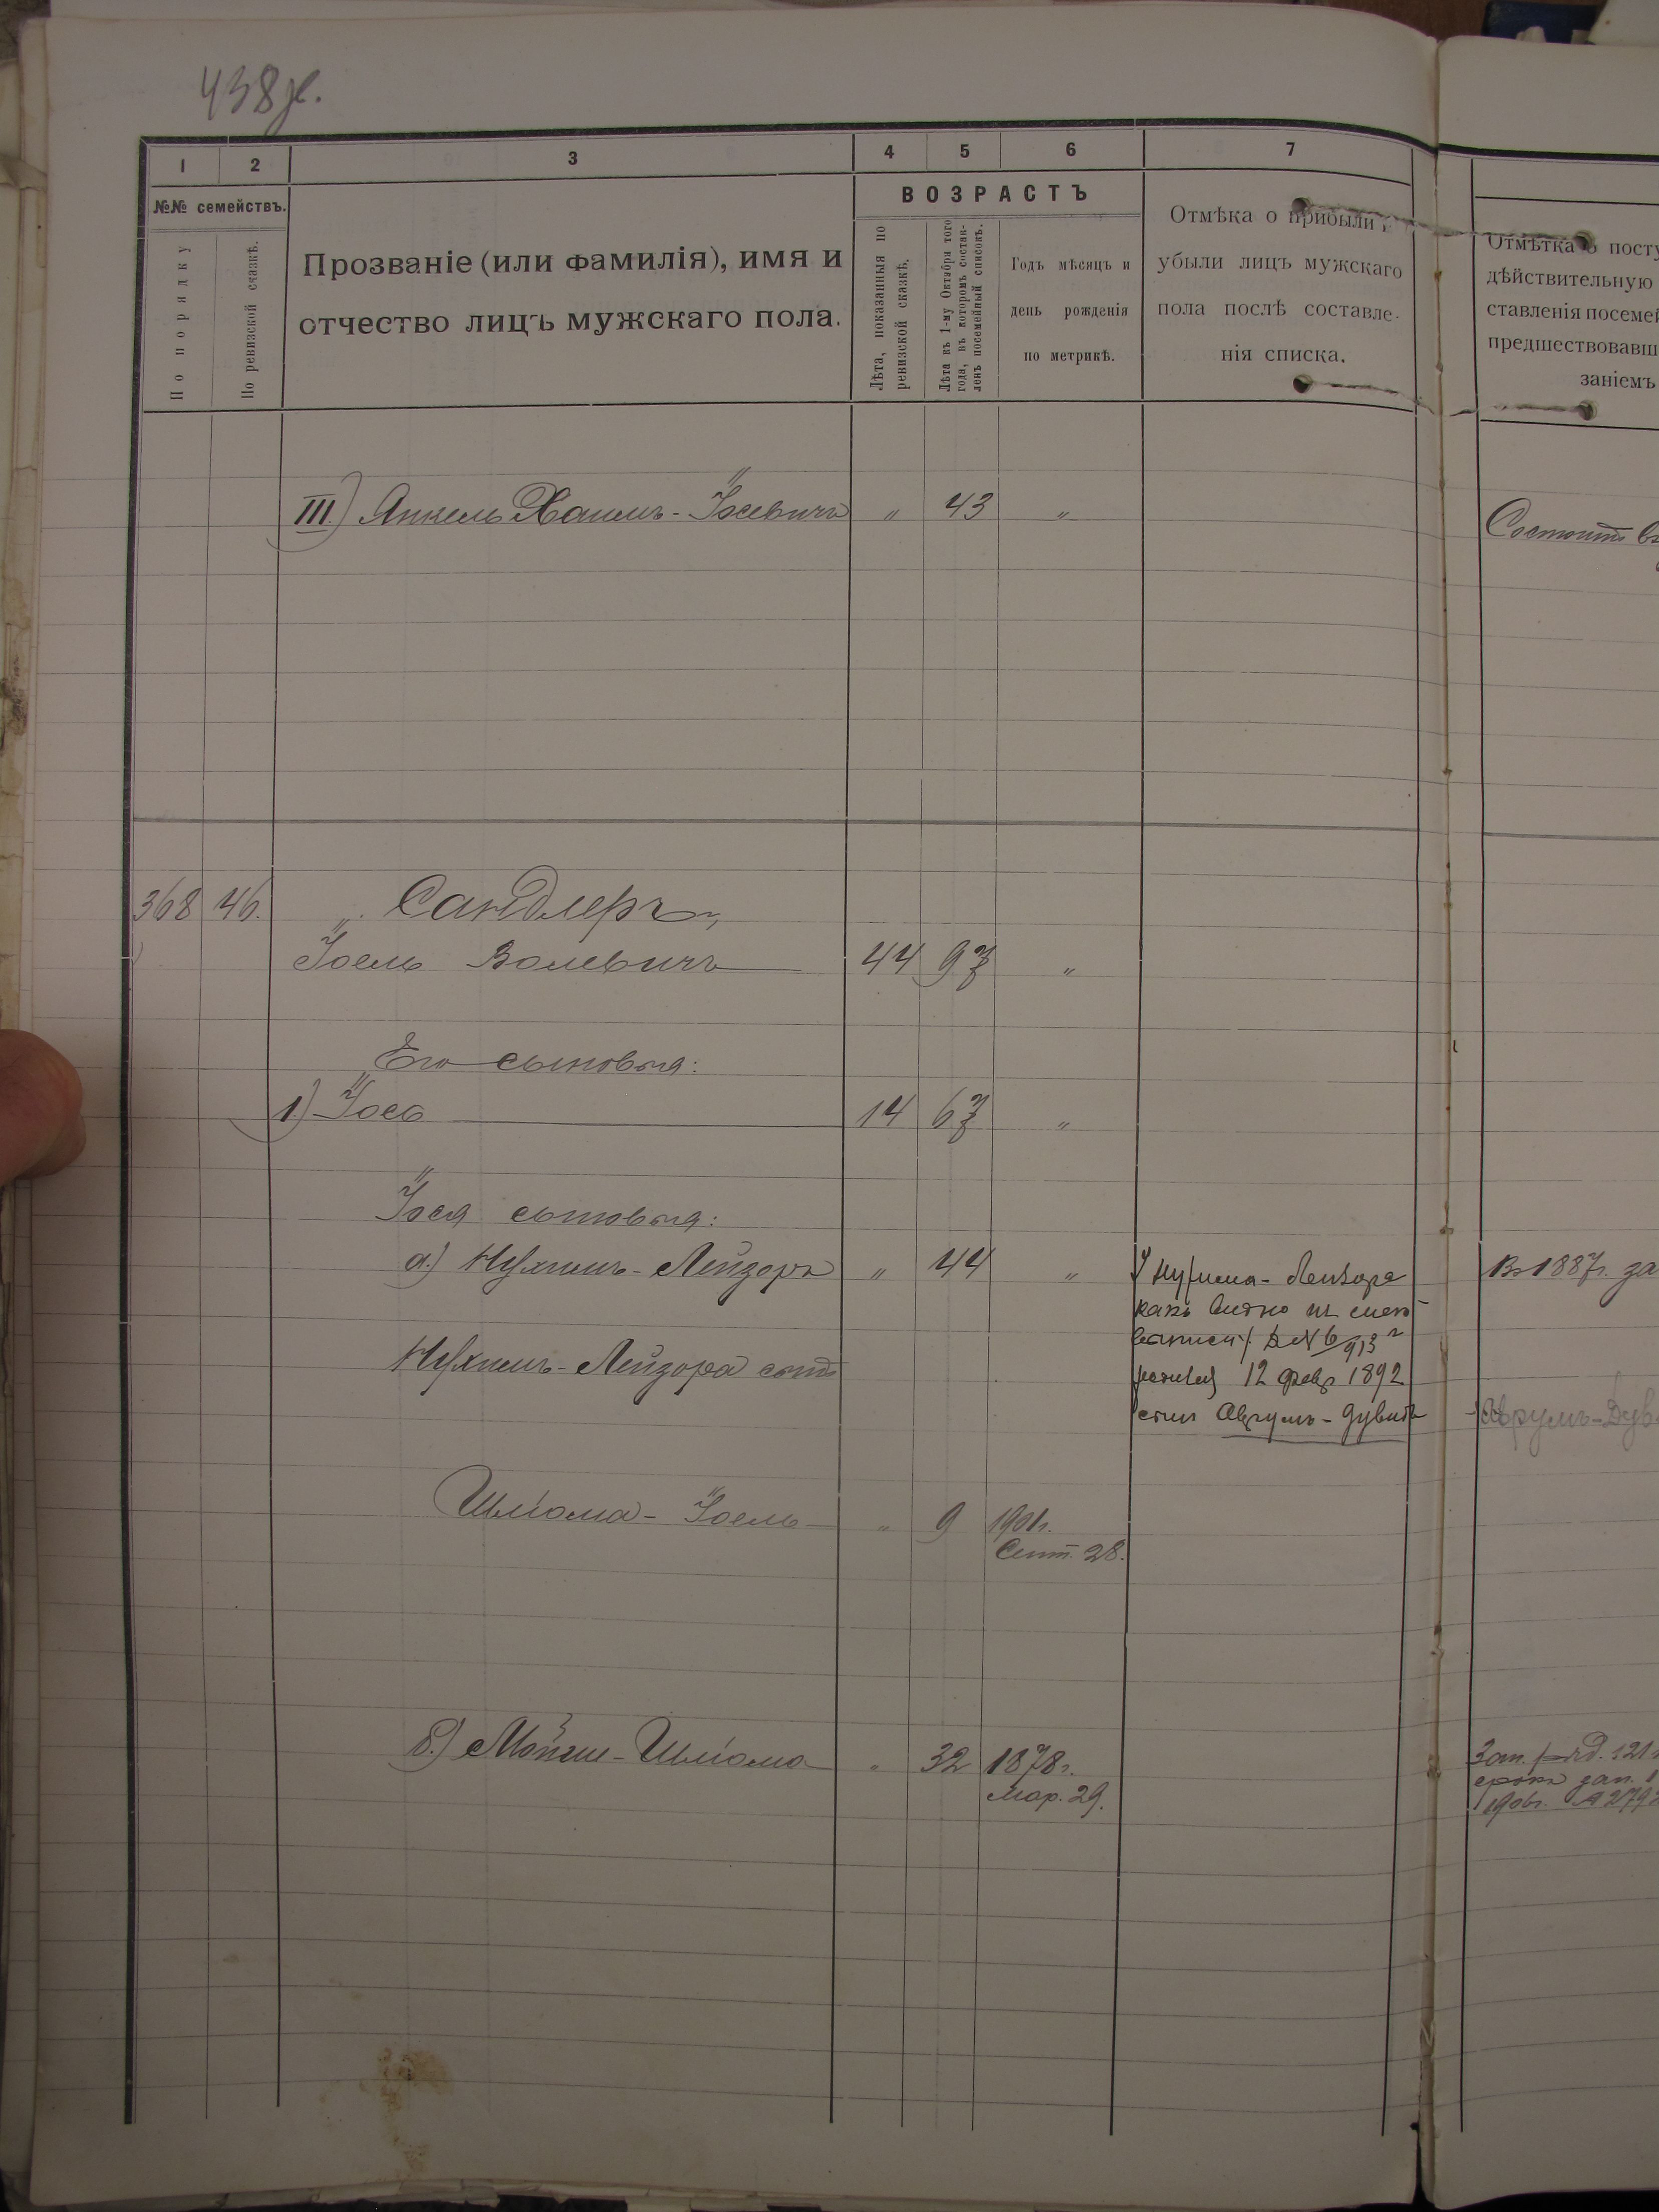 438 ж.
1 2 3 4 5 6 7
№№ семействъ.
По порядку
По ревизской сказкѣ.
Прозваніе (или фамилія), имя и
отчество лицъ мужскаго пола.
ВОЗРАСТЪ
Лѣта, показанныя по
ревизской сказкѣ.
Лѣта къ 1-му Октября того
года, въ которомъ состав-
ленъ посемейный списокъ.
Годъ мѣсяцъ и
день рожденія
по метрикѣ.
Отмѣка о прибыли и
убыли лицъ мужскаго
пола послѣ составле-
нія списка.
Отмѣтка о посту
дѣйствительную
ставленія посемей
предшествовавш
заніемъ
III.) Янкель Хаимъ-Іосевичъ " 43 "
Состоитъ въ
368 46. „Сандлеръ„
Іоель Волевичъ 44 97 "
Его сыновья:
1.) Іось 14 67 "
Іося сыновья:
а.) Нухимъ-Лейзоръ " 44 "
У Нухима-Лейзора
какъ видно изъ
12 февр 1892
сынъ Аврумъ-Дувидъ
Въ 1887г. за
Нухимъ-Лейзора сынъ
Аврумъ-Дув
Шліома-Іоель " 9 1901г.
Сент. 28.
б.) Мойше-Шліома " 32 1878г.
Мар. 29.
Зап. 121
зап. 1
1906г. № 2792